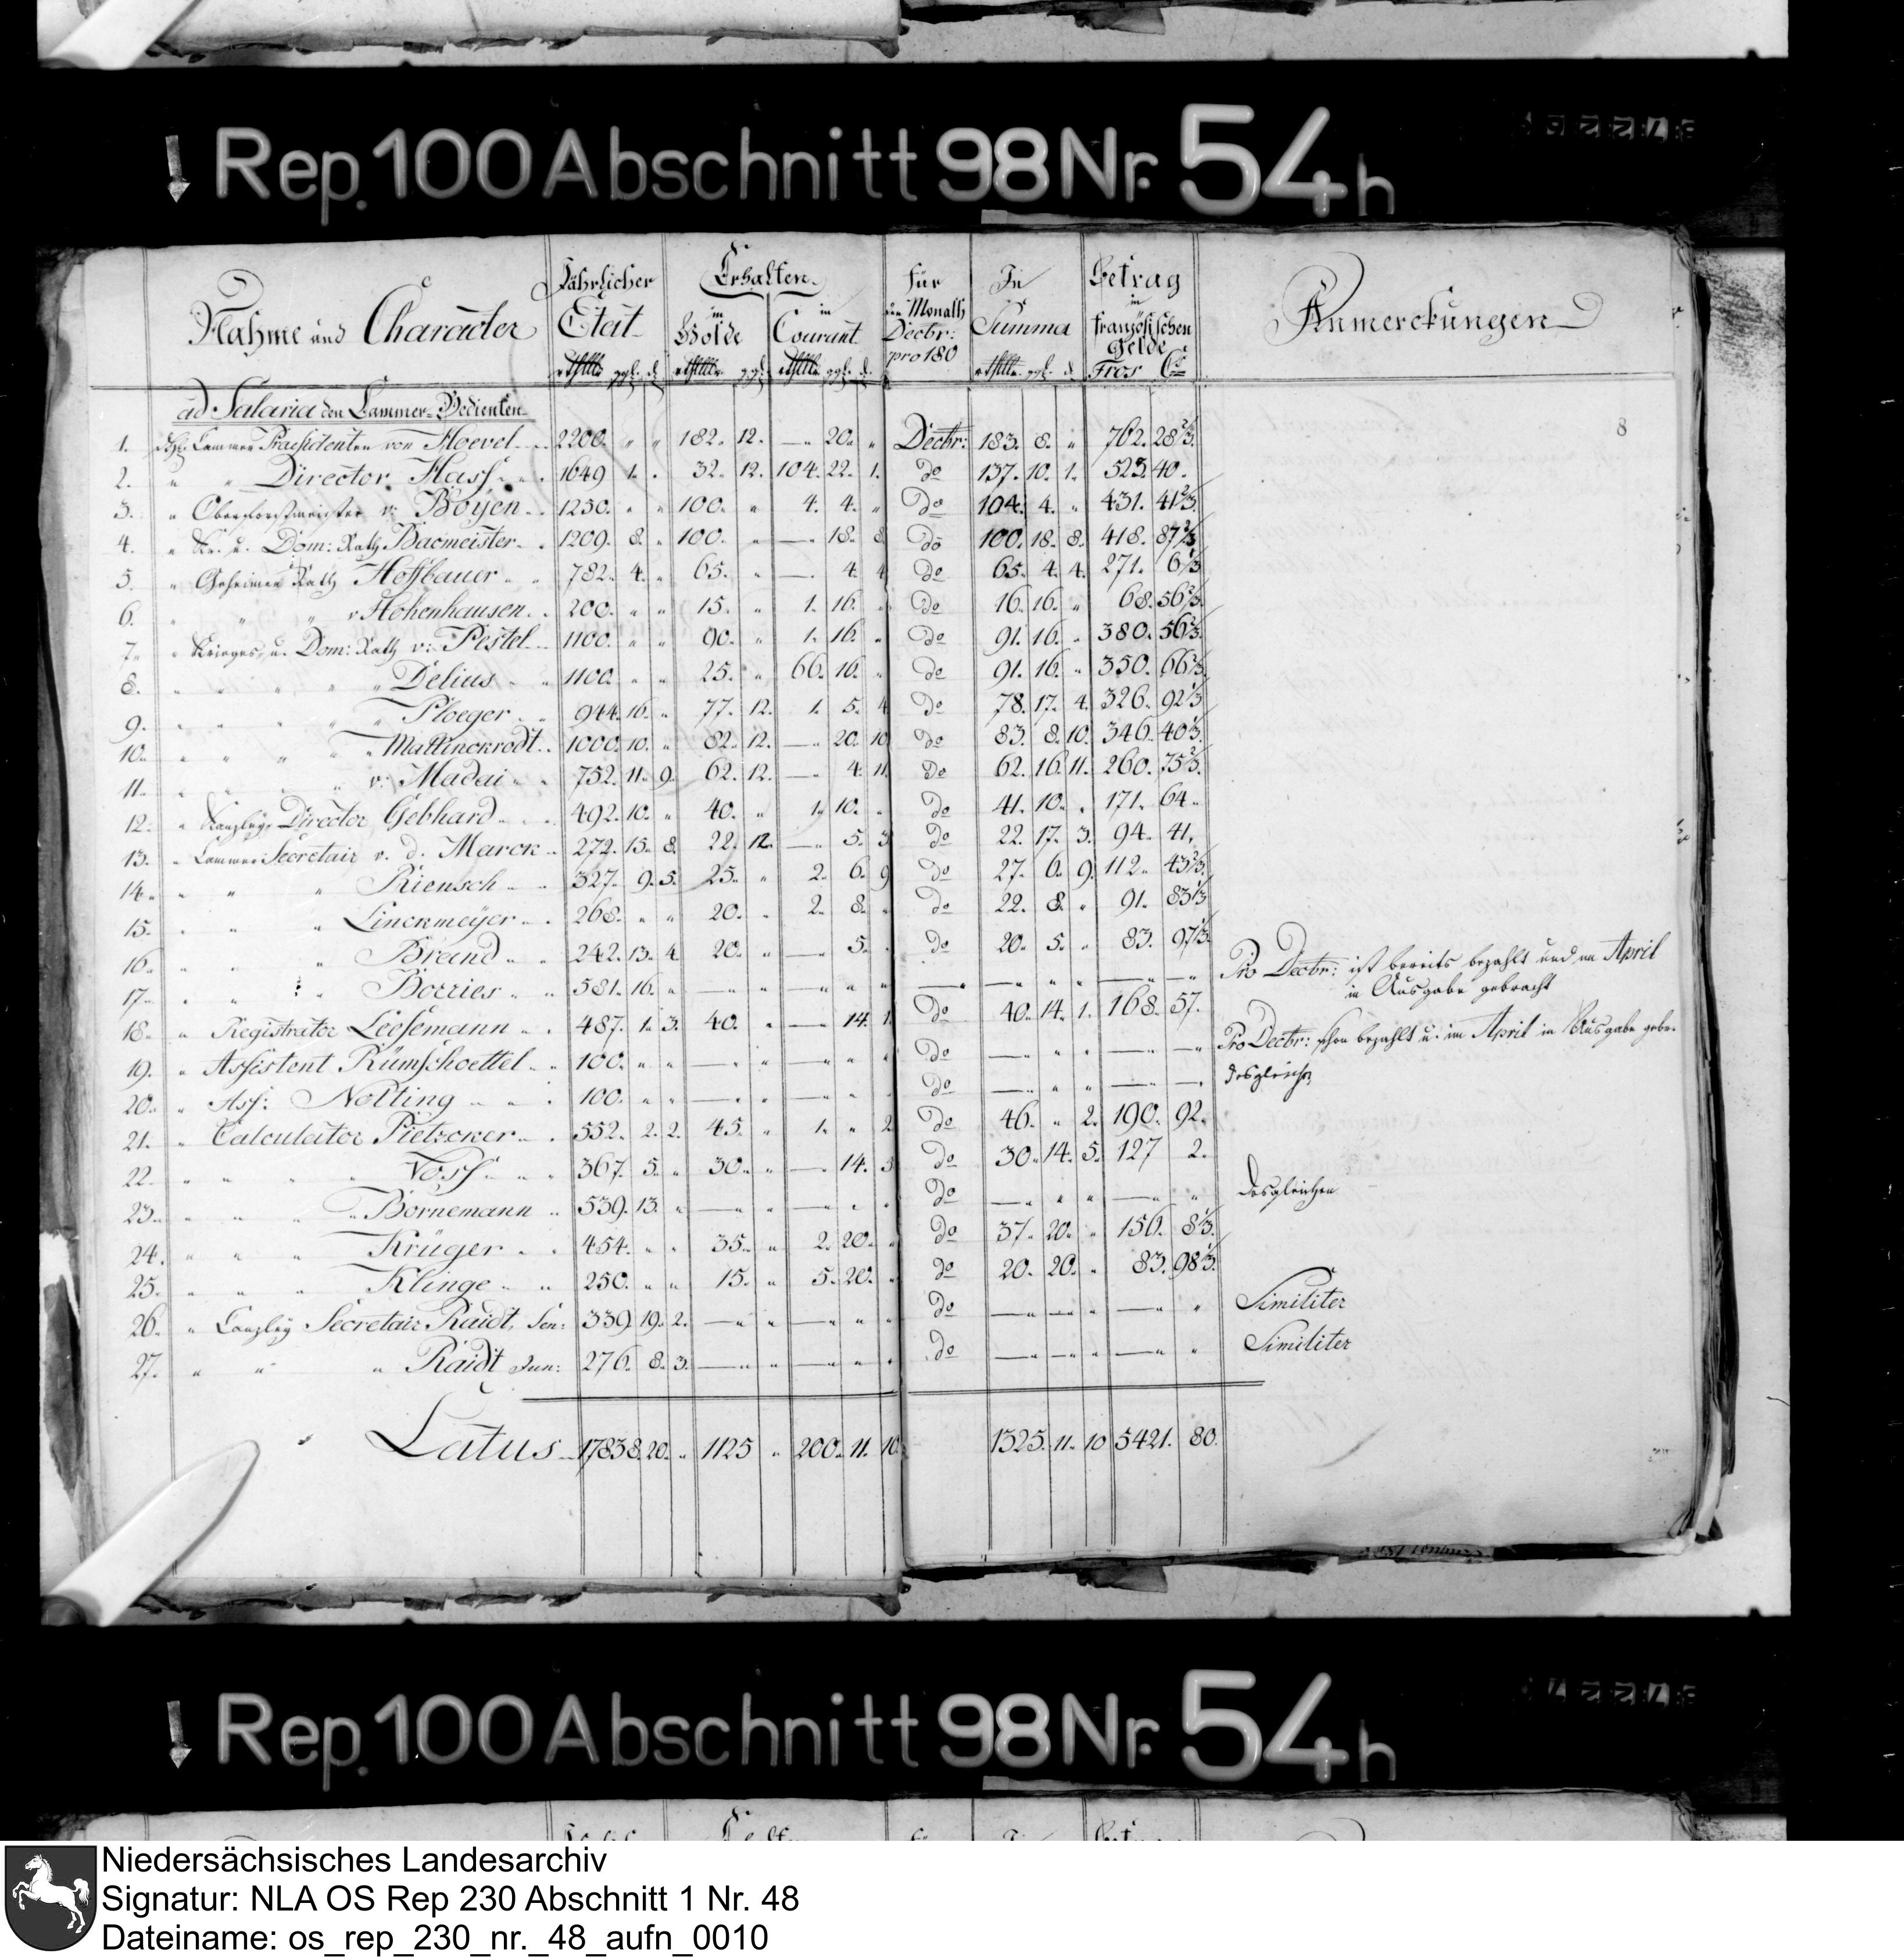 Rep. 100 Abschnitt 98 Nr. 54 h
Nahme und Character
Jährlicher Etat
Erhalten
in Golde
in Courant
für den Monath Decbr: pro 180
In Summa
Betrag in französischen Gelde
Frcs Cs
Anmerckungen
8
ad Salaria den Cammer-Bedienten
1. Cammer Praesidenten von Hoevel 2200. " " 182. 12. —. 20. " Decbr: 183. 8. " 762. 28 2/3.
2. " " Director Hass 1649 1. . 32. 12. 104. 22. 1. do 137. 10. 1. 523. 40.
3. " Oberforstmeister v: Boyen 1250. " " 100. " 4. 4. " do 104. 4. " 431. 41 2/3.
4. " Kr. u. Dom: Rath Bacmeister 1209. 8. " 100. " —. 18. 8 do 100. 18. 8. 418. 87 2/3
5. " Geheimen Rath Hoffbauer 782. 4. " 65. " —. 4. 4 do 65. 4. 4. 271. 6 1/3
6. " " " v Hohenhausen 200. " " 15. " 1. 16. " do 16. 16. " 68. 56 2/3.
7. " Krieges u. Dom: Rath v: Pestel 1100. " " 90. " 1. 16. " do 91. 16. " 380. 56 2/3.
8. " " " " " Delius 1100. " " 25. " 66. 16. " do 91. 16. " 350. 66 2/3.
9. " " " " " Ploeger 944. 16. " 77. 12. 1. 5. 4 do 78. 17. 4. 326. 92 1/3
10. " " " " " Mallinckrodt 1000. 10. " 82. 12. —. 20. 10 do 83. 8. 10. 346. 40 1/3.
11. " " " " " v: Madai 752. 11. 9. 62. 12. —. 4. 11. do 62. 16. 11. 260. 75 2/3.
12. " Kanzley Director Gebhard 492. 10. " 40. " 1. 10. " do 41. 10. " 171. 64.
13. " Cammer Secretair v. d. Marck 272. 15. 8. 22. 12. —. 5. 3 do 22. 17. 3. 94. 41.
14. " " " Riensch 327. 9. 5. 25. " 2. 6. 9 do 27. 6. 9. 112. 43 2/3.
15. " " " Linckmeyer 268. " " 20. " 2. 8. " do 22. 8. " 91. 83 1/3
16. " " " Brand 242. 13. 4 20. " —. 5. . do 20. 5. " 83. 97 1/3.
17. " " " Borries 581. 16. " —" " —" " " —" —" " " —" " Pro Decbr: ist bereits bezahlt und im April
in Ausgabe gebracht
18. " Registrator Leesemann 487. 1. 3. 40. " —. 14. 1. do 40. 14. 1. 168. 57.
19. " Assistent Rümschoettel 100. " " —" " —" " " do —" " " —" —" Pro Decbr: schon bezahlt u. im April in Ausgabe gebr.
20. " Ass: Nolting 100. " " —" " —" " " do —" " " —" —" desgleichen
21. " Calculator Pietzcker 552. 2. 2. 45. " 1. " 2 do 46. " 2. 190. 92.
22. " " " " Voss 367. 5. " 30. " —. 14. 5 do 30. 14. 5. 127 2.
23. " " " " Bornemann 539. 13. " —" " —" " " do —" " " —" " desgleichen
24. " " " Krüger 454. " " 35. " 2. 20. " do 37. 20. " 156. 8 1/3.
25. " " " Klinge 250. " " 15. " 5. 20. " do 20. 20. " 83. 98 1/3.
26. " Canzley Secretair Raidt, Sen: 339. 19. 2. —" " —" " " do —" —" " —" " Similiter
27. " " " Raidt Jun: 276. 8. 3. —" " —" " " do —" —" " —" " Similiter
Latus 17838. 20. " 1125 " 200. 11. 10. 1325. 11. 10 5421. 80.
Rep. 100 Abschnitt 98 Nr. 54 h
Niedersächsisches Landesarchiv
Signatur: NLA OS Rep 230 Abschnitt 1 Nr. 48
Dateiname: os_rep_230_nr._48_aufn_0010